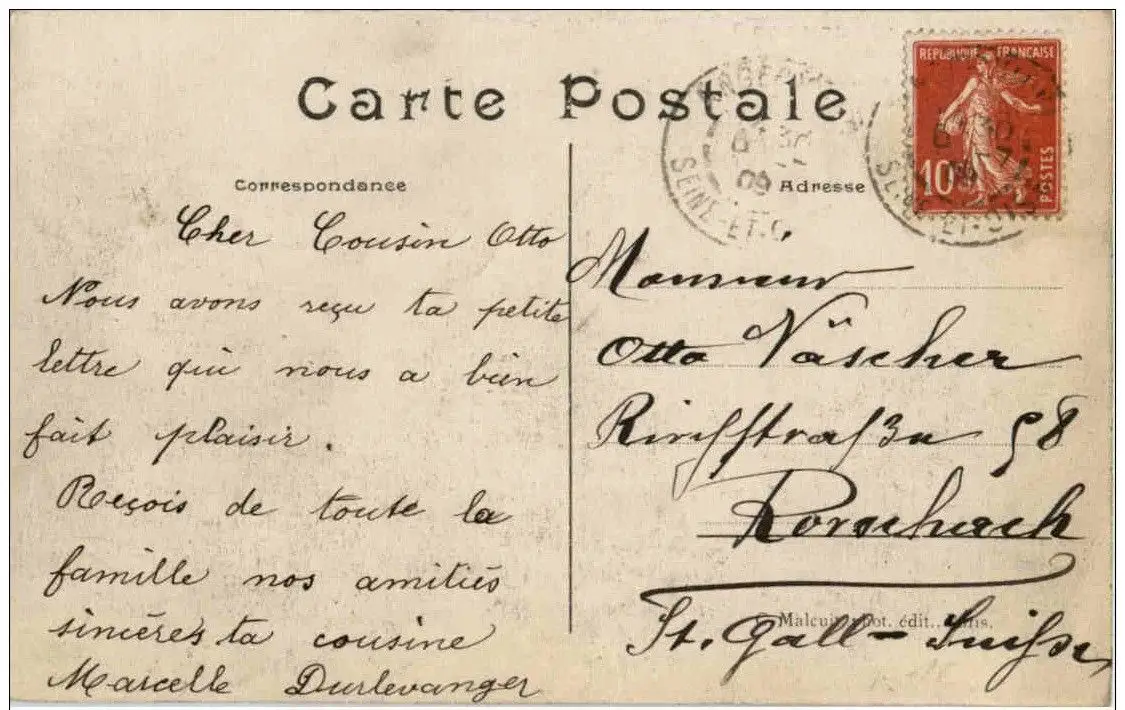 Carte Postale
Correspondance
Cher Cousin Otto
Nous avons reçu ta petite
lettre qui nous a bien
fait plaisir.
Reçois de toute la
famille nos amitiés
sincères ta cousine
Marcelle Durlevanger
REPUBLIQUE FRANÇAISE
10
POSTES
09
SEINE-ET-O
Adresse
Monsieur
Otto Näscher
58
Rorschach
St. Gall - Suisse
Malcuit, phot. édit.